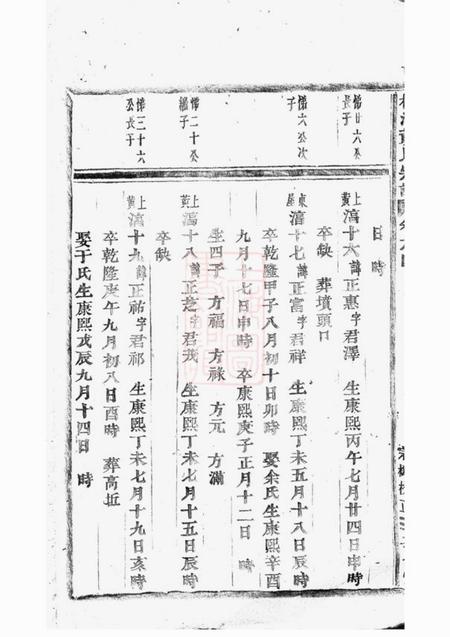 日 時
惟廿六公長子
上黃 滈十六諱正惠字君澤 生康熙丙午七月廿四日申時
卒缺 葬墳頭口
惟六公次子
東屋 滈十七諱正富字君祥 生康熙丁未五月十八日辰時
卒乾隆甲子八月初十日卯時 娶余氏生康熙辛酉
九月十七日申時 卒康熙庚子正月十二日 時
生四子 方福 方祿 方元 方滿
惟二十公繼子
上黃 滈十八諱正芝字君茂 生康熙丁未七月十五日辰時
卒缺
惟三十六公長子
上黃 滈十九諱正祐字君祁 生康熙丁未七月十九日亥時
卒乾隆庚午九月初八日酉時 葬高坵
娶于氏生康熙戊辰九月十四日 時